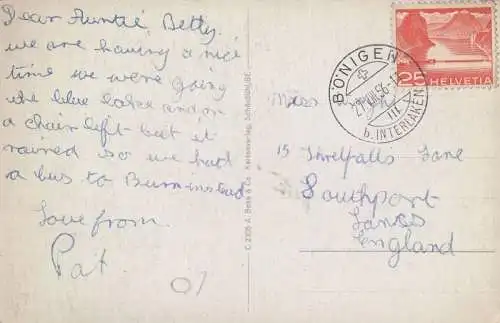 Dear Auntie Betty.
we are having a nice
time we were going
the blue lake and on
a chair lift but it
rained so we had
a bus to Bern instead
Love from
Pat
07
C 2305 A. Boss & Co. Kartenverlag, Schönbühl/BE.
BÖNIGEN
b. INTERLAKEN
25
HELVETIA
Miss
15 Threlfalls Lane
Southport
Lancs
England